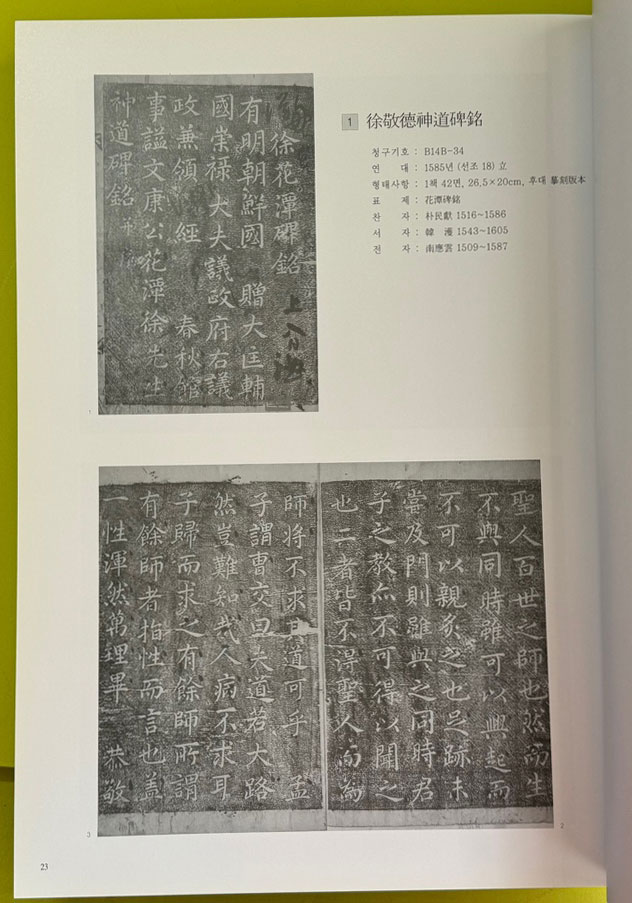 1 徐敬德神道碑銘
청구기호 : B14B-34
연 대 : 1585년 (선조 18) 立
형태사항 : 1책 42면, 26.5×20cm, 후대 摹刻版本
표 제 : 花潭碑銘
찬 자 : 朴民獻 1516~1586
서 자 : 韓 濩 1543~1605
전 자 : 南應雲 1509~1587
徐花潭碑銘
有明朝鮮國 贈大匡輔
國崇祿大夫議政府右議
政兼領 經 春秋館
事謚文康公花潭徐先生
神道碑銘
1
聖人百世之師也然而生
不與同時雖可以興起而
不可以親炙之也足跡未
嘗及門則雖與之同時君
子之教亦不可得以聞之
也二者皆不得聖人而爲
2
師將不求其道可乎 孟
子謂曺交曰夫道若大路
然豈難知哉人病不求耳
子歸而求之有餘師所謂
有餘師者指性而言也盖
一性渾然萬理畢 恭敬
3
23